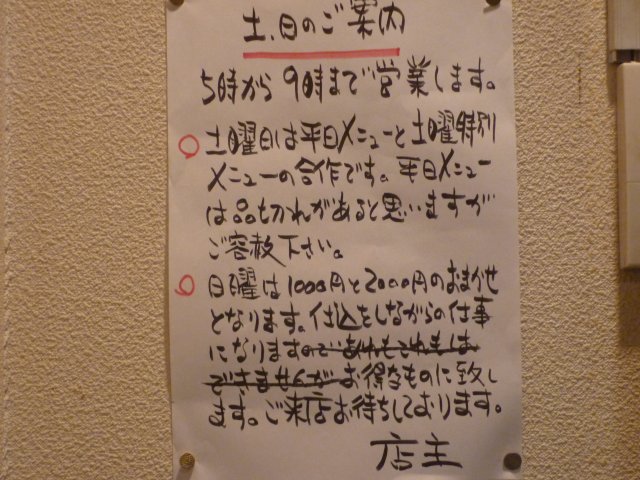 土、日のご案内
5時から9時まで営業します。
土曜日は平日メニューと土曜特別
メニューの合作です。平日メニュー
は品切れがあると思いますが
ご容赦下さい。
日曜は1000円と2000円のおまかせ
となります。仕込をしながらの仕事
になりますのであれもこれもは
できませんがお得なものに致し
ます。ご来店お待ちしております。
店主